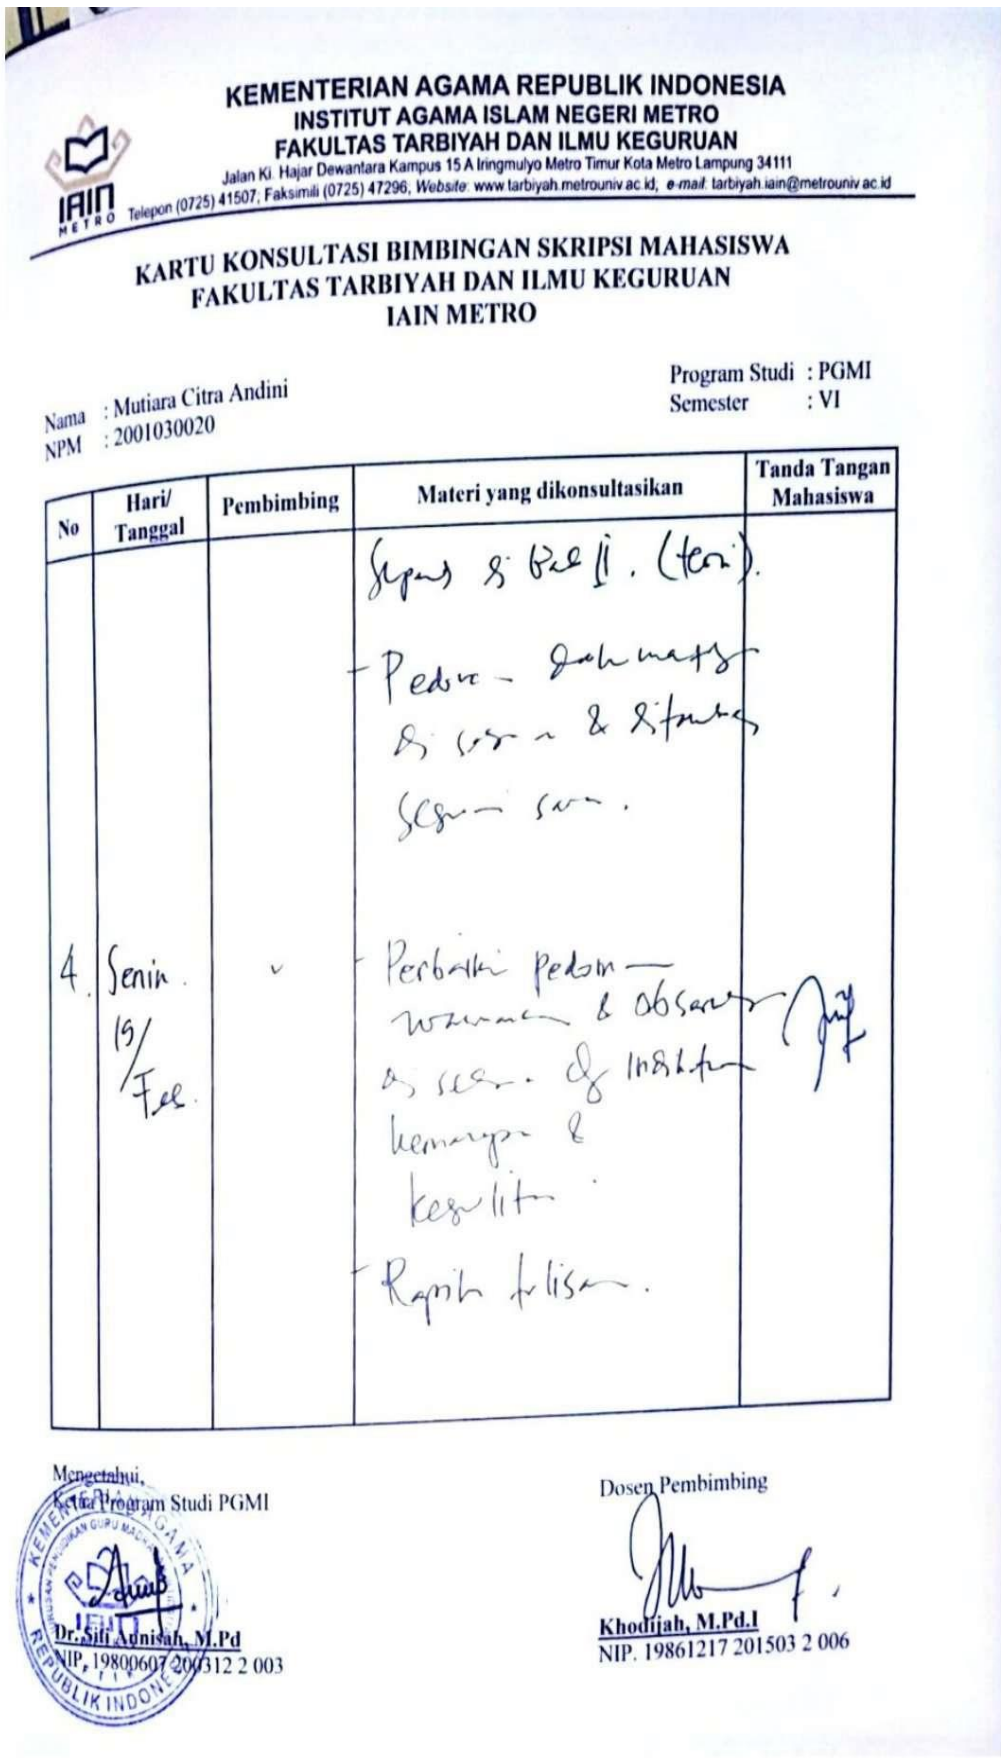 KEMENTERIAN AGAMA REPUBLIK INDONESIA
INSTITUT AGAMA ISLAM NEGERI METRO
FAKULTAS TARBIYAH DAN ILMU KEGURUAN
Jalan Ki. Hajar Dewantara Kampus 15 A Iringmulyo Metro Timur Kota Metro Lampung 34111
Telepon (0725) 41507; Faksimili (0725) 47296; Website: www.tarbiyah.metrouniv.ac.id; e-mail: tarbiyah.iain@metrouniv.ac.id
IAIN
METRO
KARTU KONSULTASI BIMBINGAN SKRIPSI MAHASISWA
FAKULTAS TARBIYAH DAN ILMU KEGURUAN
IAIN METRO
Nama : Mutiara Citra Andini
NPM : 2001030020
Program Studi : PGMI
Semester : VI
No Hari/ Tanggal Pembimbing Materi yang dikonsultasikan Tanda Tangan Mahasiswa
di Bab II. (teori).
- &
sesuai
4. Senin. ✓ - Perbaiki pedoman
19/ & Observasi
Feb.
&
kesulitan
- Rapih tulisan.
Mengetahui,
Ketua Program Studi PGMI
Dr. Siti Annisah, M.Pd
NIP. 19800607 200312 2 003
Dosen Pembimbing
Khodijah, M.Pd.I
NIP. 19861217 201503 2 006
KEMENTERIAN AGAMA
REPUBLIK INDONESIA